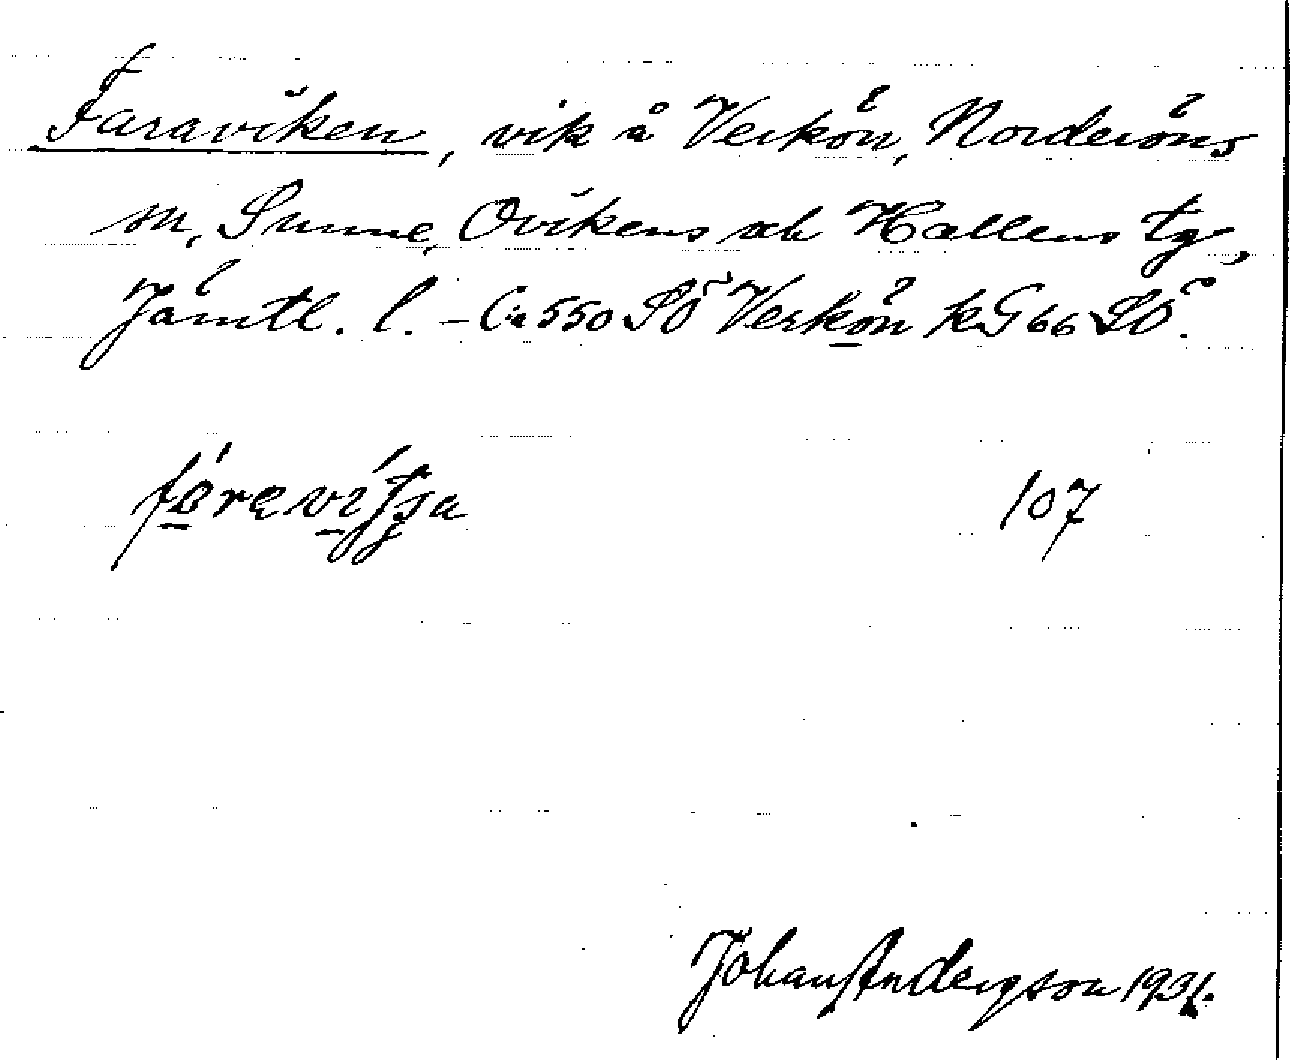 Faraviken, vik å Verkön, Norderöns
sn, Sunne, Ovikens och Hallens tg,
Jämtl. l. – Ca 550 SÖ Verkön kG 66 SÖ.
107
Johan Anderson 1931.